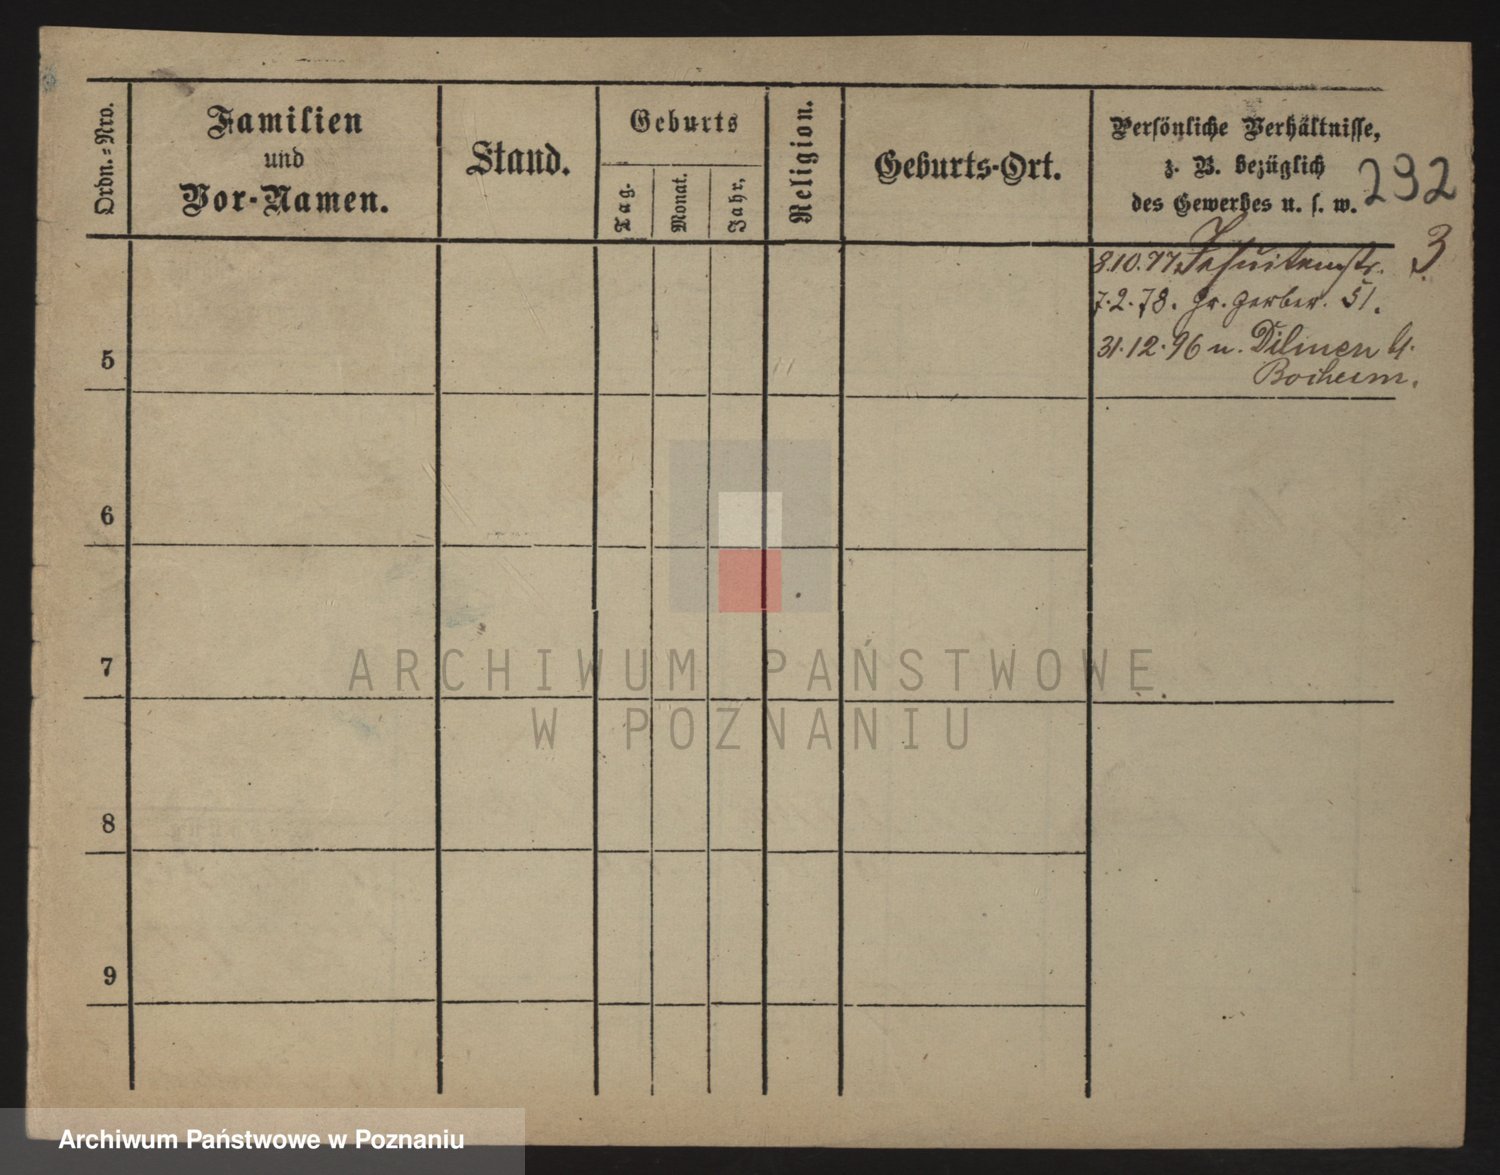 Ordn.-Nro.
Familien
und
Vor-Namen.
Stand.
Geburts
Tag.
Monat.
Jahr,
Religion.
Geburts-Ort.
Persönliche Verhältnisse,
z. B. bezüglich
des Gewerbes u. s. w.
292
8.10.77 Jesuitenstr. 3
7.2.78. Gr. Gerber. 51.
5
31.12.96 n.
6
7
8
9
ARCHIWUM PAŃSTWOWE
W POZNANIU
Archiwum Państwowe w Poznaniu